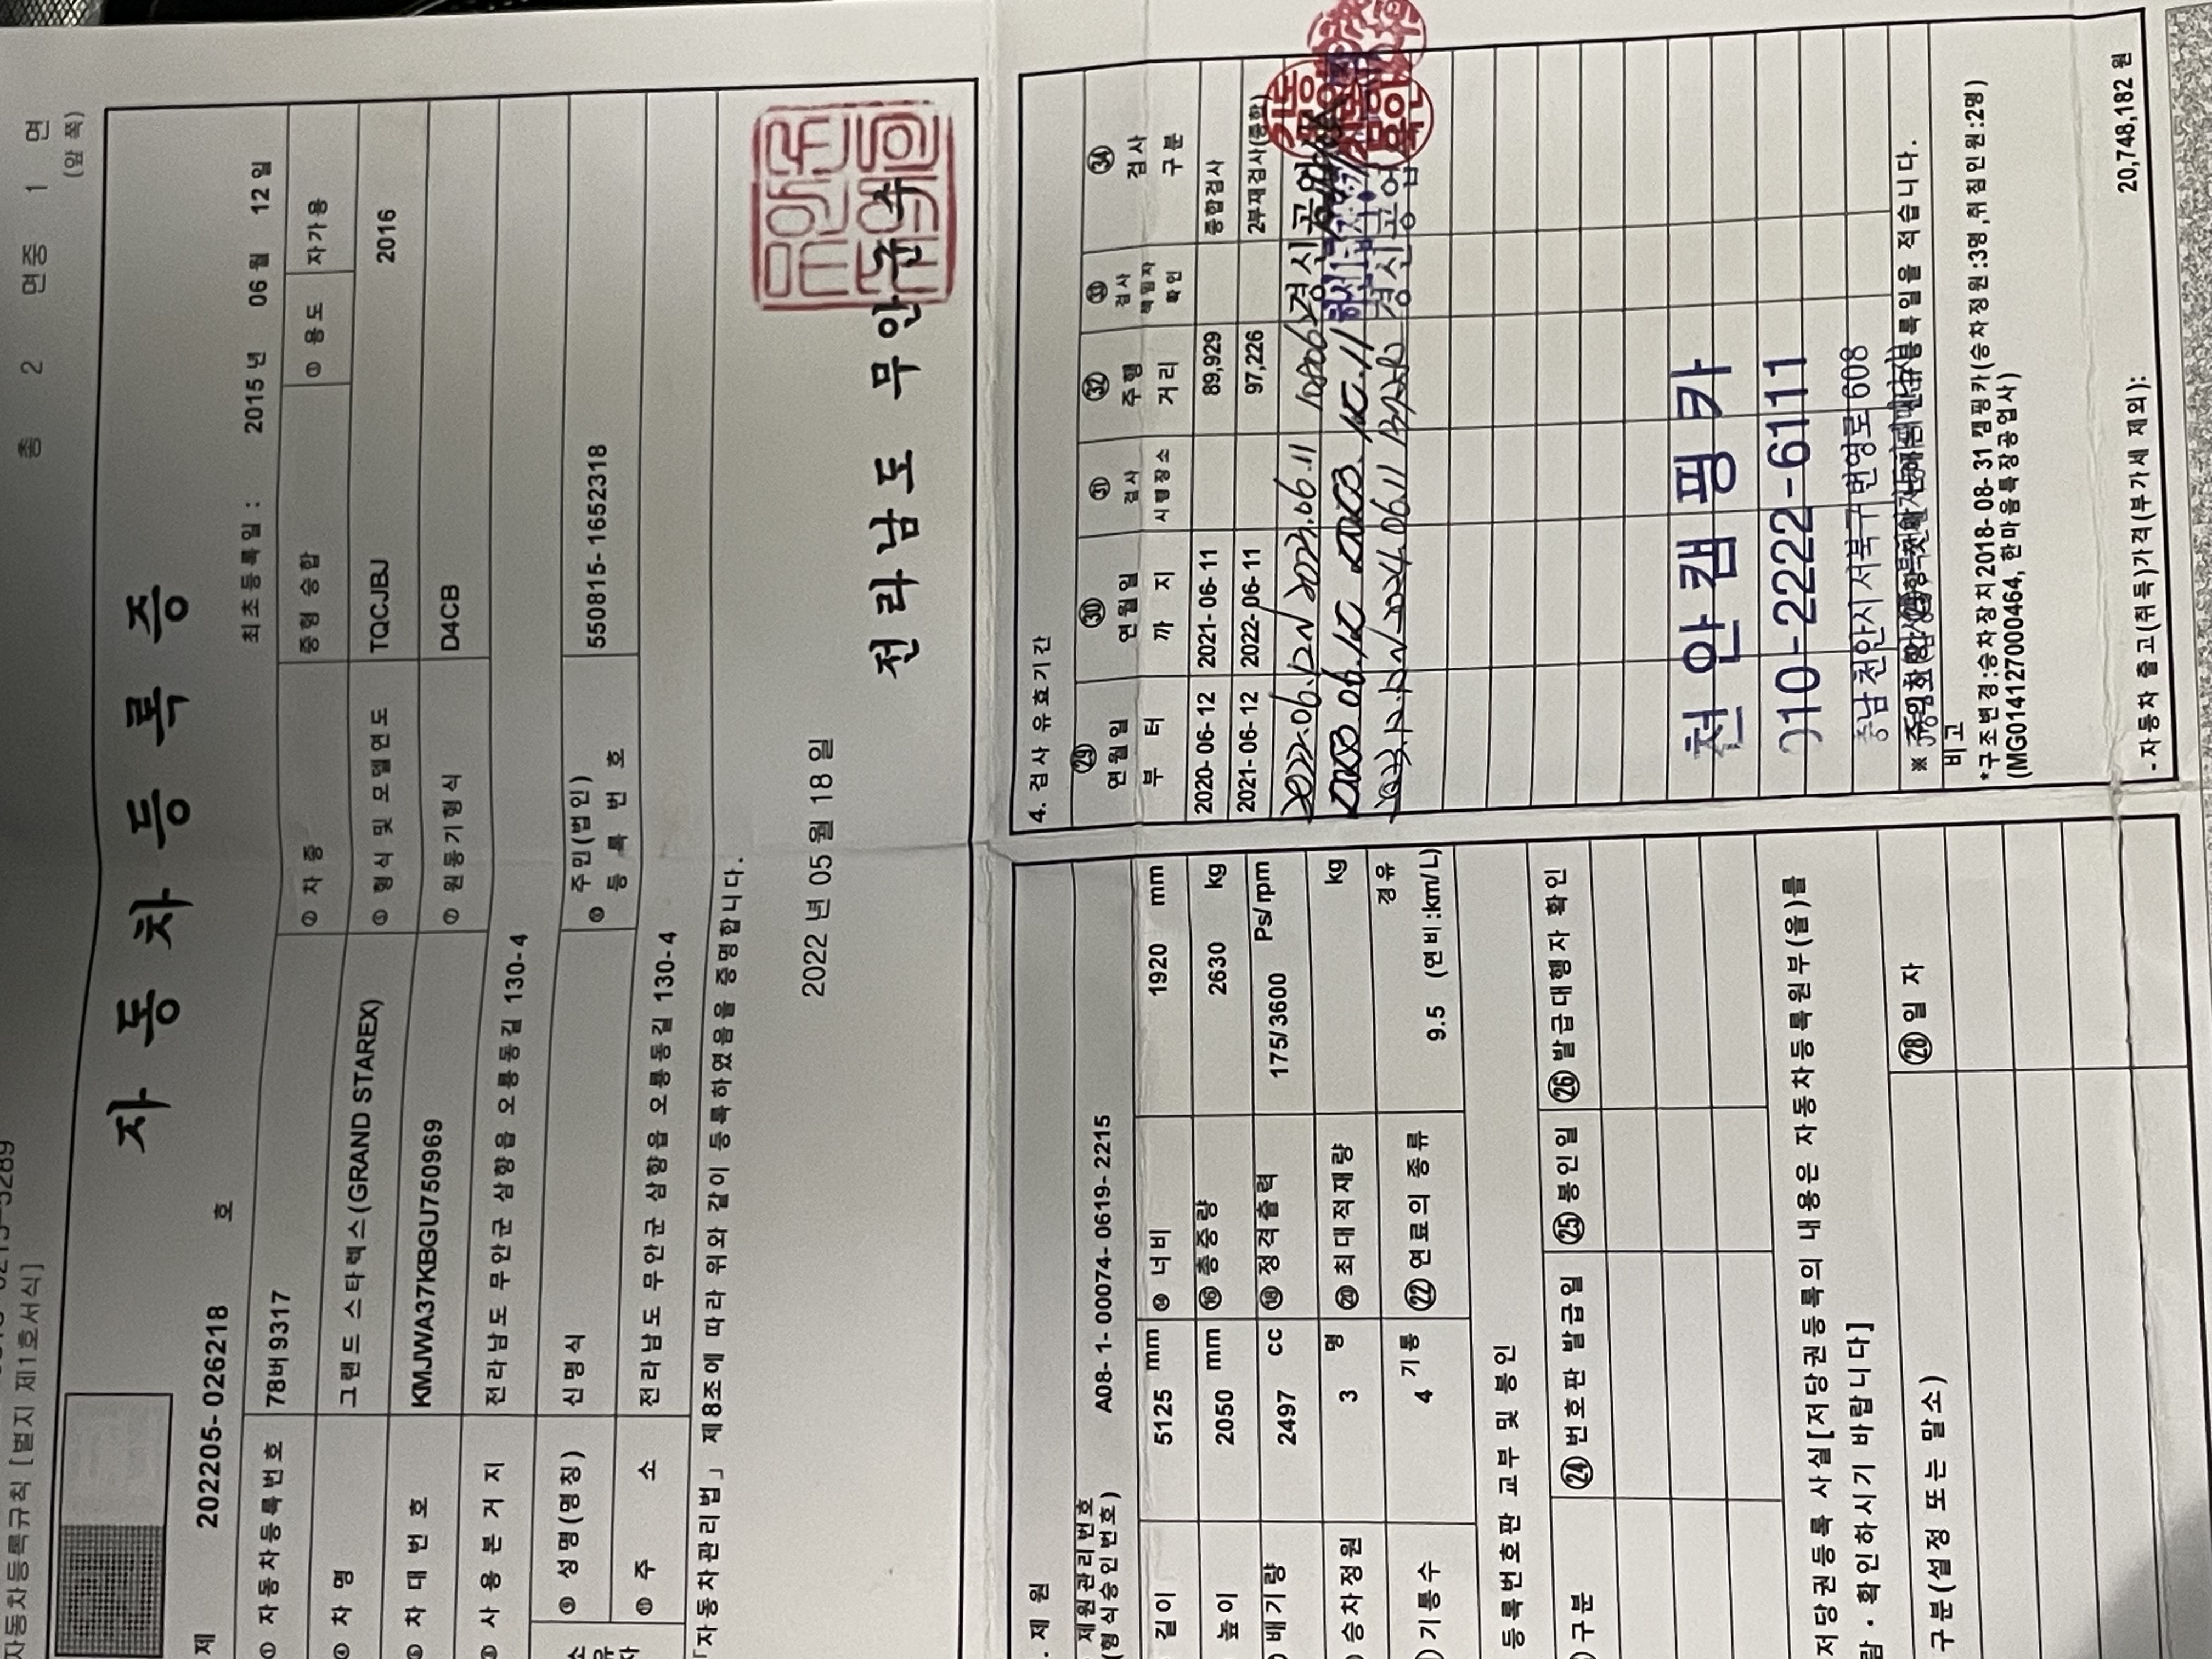 자동차등록규칙 [별지 제1호서식]
총 2 면중 1 면
(앞 쪽)
자 동 차 등 록 증
제 202205-026218 호
최초등록일 : 2015 년 06 월 12 일
① 자동차등록번호 78버9317 ② 차 종 중형 승합 ③ 용도 자가용
④ 차 명 그랜드 스타렉스(GRAND STAREX) ⑤ 형식 및 모델연도 TQCJBJ 2016
⑥ 차 대 번 호 KMJWA37KBGU750969 ⑦ 원동기형식 D4CB
⑧ 사 용 본 거 지 전라남도 무안군 삼향읍 오룡동길 130-4
소유자
⑨ 성명(명칭) 신명식 ⑩ 주민(법인)등 록 번 호 550815-1652318
⑪ 주 소 전라남도 무안군 삼향읍 오룡동길 130-4
「자동차관리법」 제8조에 따라 위와 같이 등록하였음을 증명합니다.
2022 년 05 월 18 일
전라남도 무안군수
. 제 원
제원관리번호
(형식승인번호) A08-1-00074-0619-2215
길이 5125 mm ⑭ 너비 1920 mm
높이 2050 mm ⑯ 총중량 2630 kg
배기량 2497 cc ⑱ 정격출력 175/3600 Ps/rpm
승차정원 3 명 ⑳ 최대적재량 kg
기통수 4 기통 ㉒ 연료의 종류 경유
9.5 (연비:km/L)
등록번호판 교부 및 봉인
구분 ㉔ 번호판 발급일 ㉕ 봉인일 ㉖ 발급대행자 확인
저당권등록 사실[저당권등록의 내용은 자동차등록원부(을)를
람·확인하시기 바랍니다]
구분(설정 또는 말소) ㉘ 일 자
4. 검사 유효기간
㉙ 연월일 부 터 ㉚ 연월일 까 지 ㉛ 검사 시행장소 ㉜ 주행 거리 ㉝ 검사 책임자 확인 ㉞ 검사 구분
2020-06-12 2021-06-11 89,929 종합검사
2021-06-12 2022-06-11 97,226 2부재검사(종합)
2022.06.12 2023.06.11
2024.06.11
천안캠핑카
010-2222-6111
충남 천안시 서북구 번영로 608
비고
*구조변경:승차장치2018-08-31 캠핑카(승차정원:3명,취침인원:2명)
(MG014127000464, 한마음특장공업사)
-자동차 출고(취득)가격(부가세 제외): 20,748,182 원